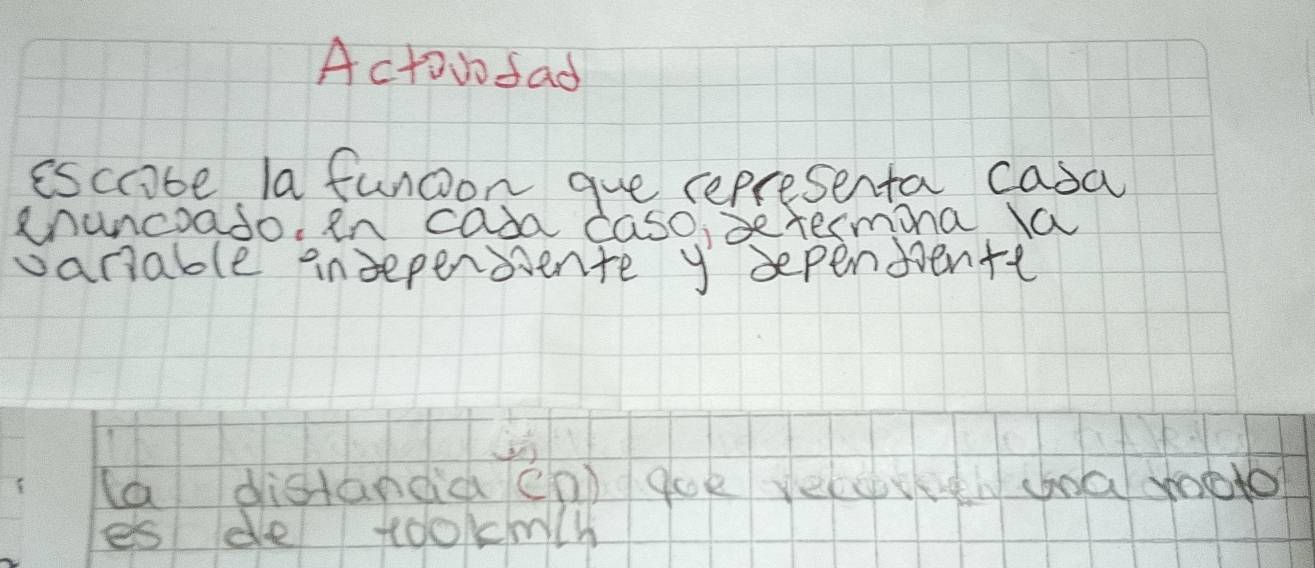 Actividad
Escribe la función que representa cada
enunciado. en cada caso, determina la
variable independiente y dependiente
la distancia (D) que recorre una moto
es de 100km/h